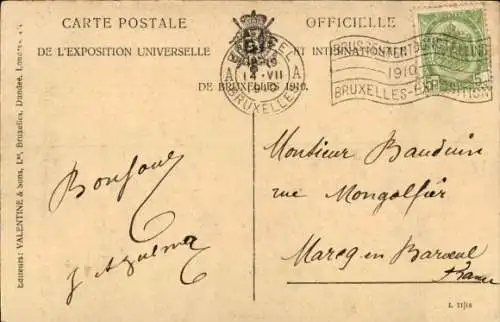 CARTE POSTALE OFFICIELLE
DE L'EXPOSITION UNIVERSELLE ET INTERNATIONALE
DE BRUXELLES 1910.
BRUSSEL
A 14-VII A
1910
BRUXELLES
BRUSSEL-TENTOONSTELLING
1910
BRUXELLES-EXPOSITION
5 5
Editeurs: VALENTINE & Sons, Ld, Bruxelles, Dundee, Londres
Bonjour
Monsieur Bauduin
rue Mongolfier
Marcq en Baroeul
France
L 11/18